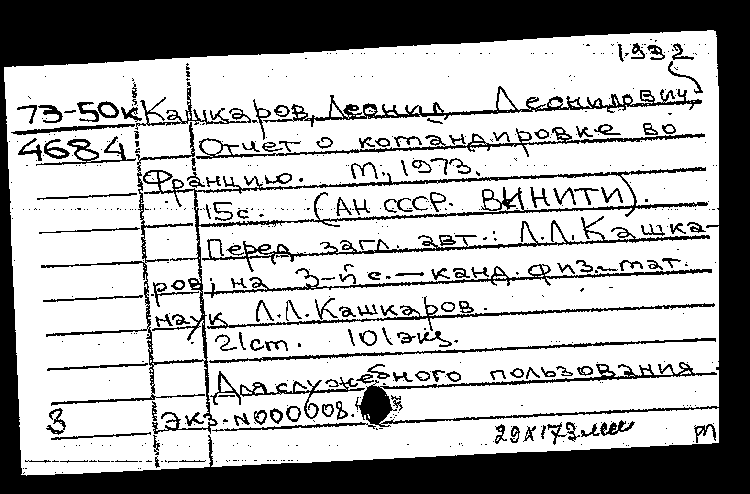 1932
73-50к Кашкаров, Леонид Леонидович,
4684 Отчет о командировке во
Францию. М., 1973.
15с. (АН СССР. ВИНИТИ).
Перед загл. авт.: Л.Л.Кашка-
ров; на 3-й с. — канд. физ.-мат.
наук Л.Л.Кашкаров.
21см. 101экз.
Для служебного пользования
З Экз. N000008.
29 X 173
РП